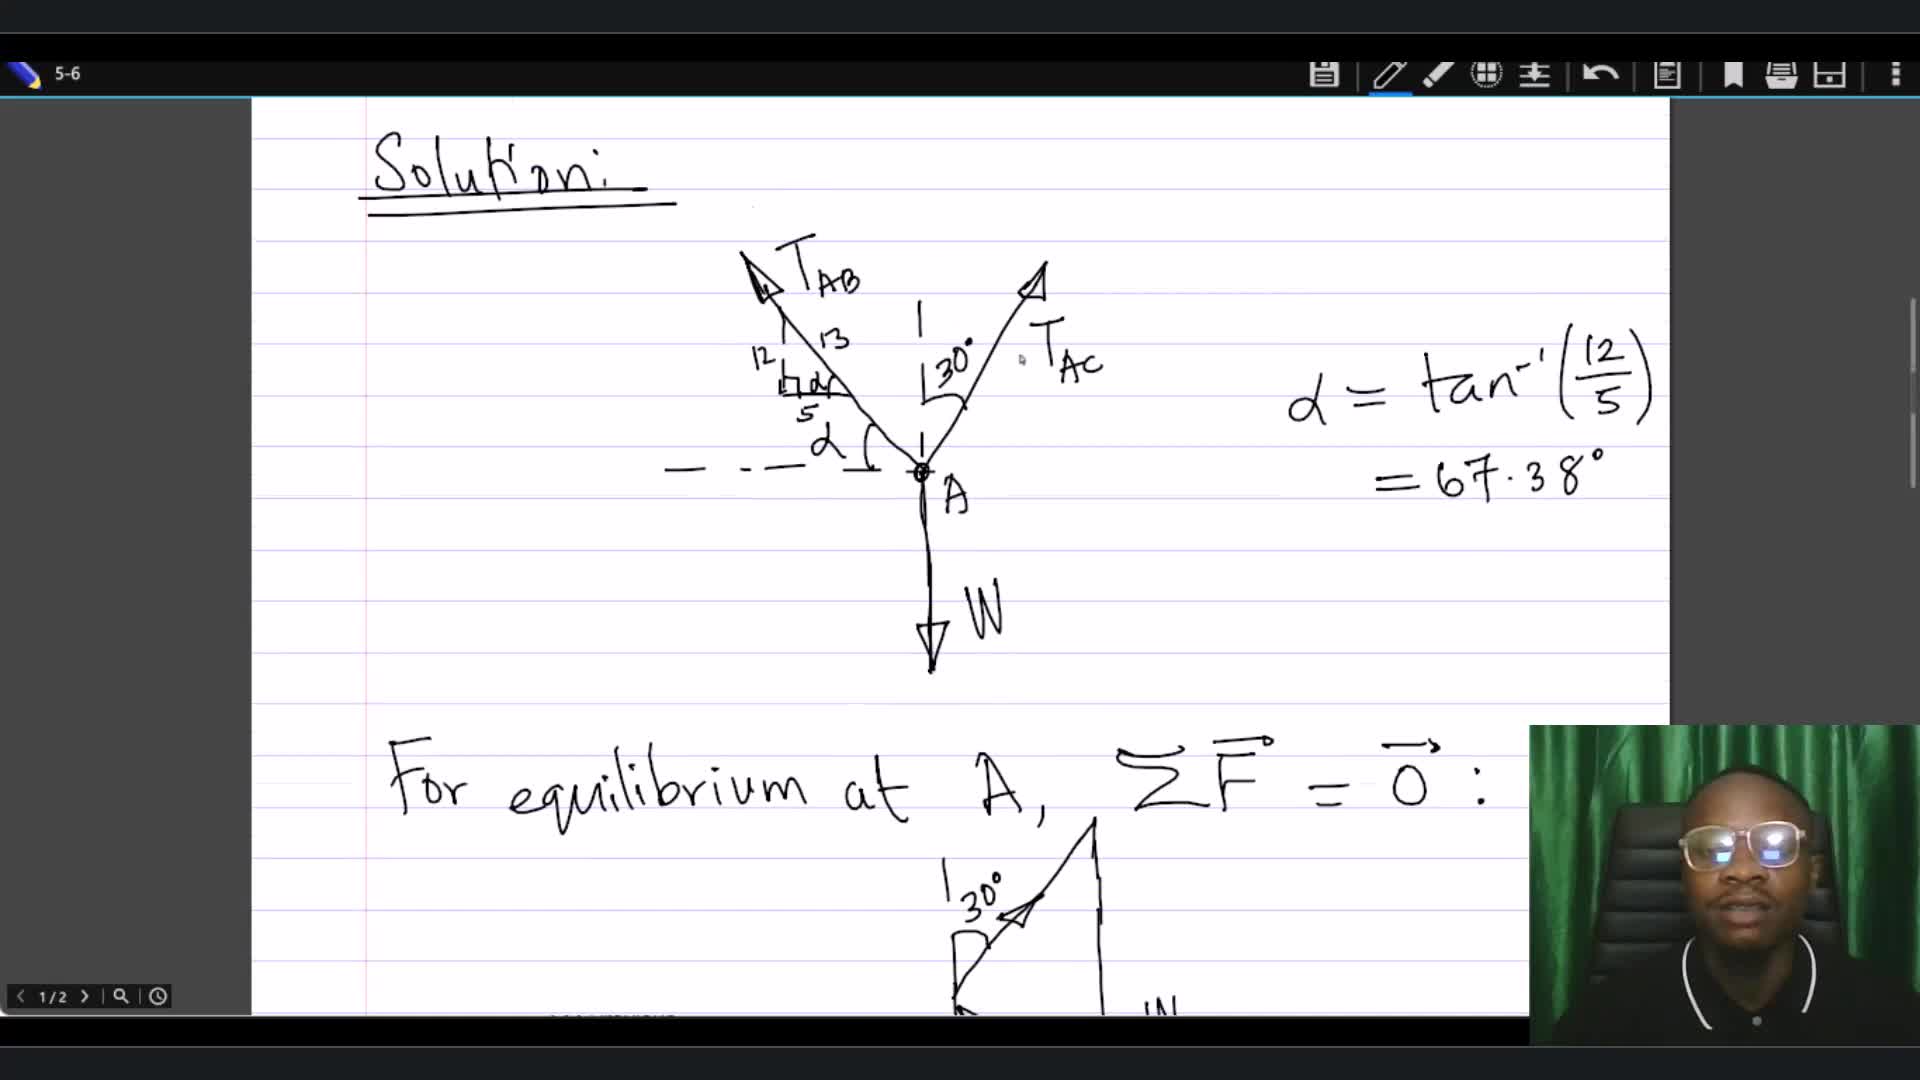 5-6
Solution:
T_AB
T_AC
13
12
30°
α
5
α
A
W
α = tan⁻¹(12/5)
= 67.38°
For equilibrium at A, ΣF⃗ = 0⃗ :
30°
W
1/2